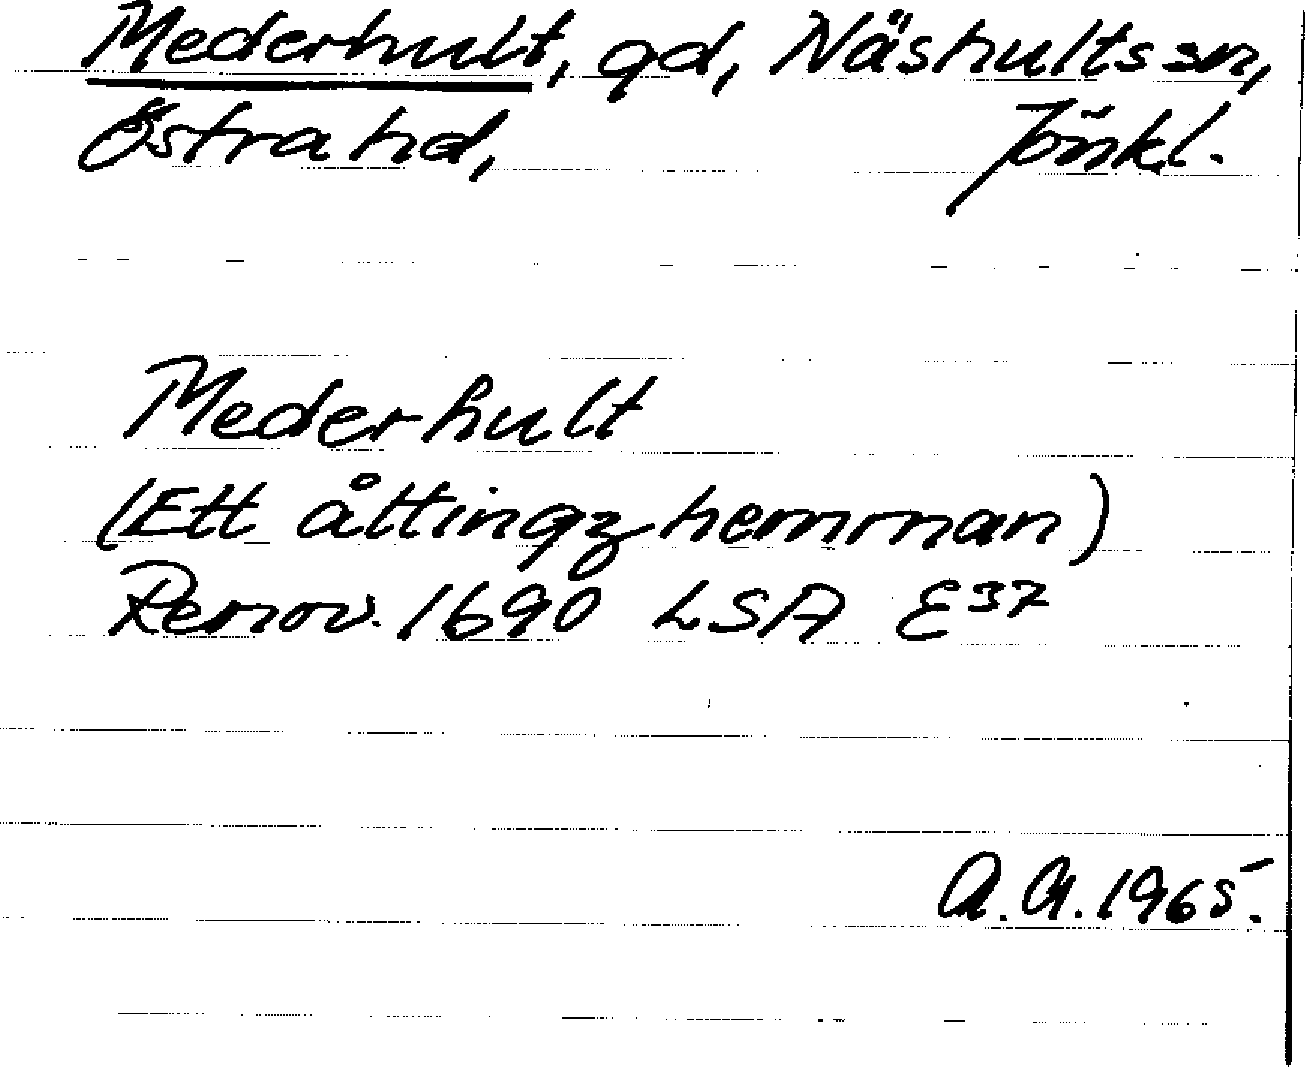 Mederhult, gd, Näshults sn,
Östra hd, Jönkl.
Mederhult
(Ett åttingz hemman)
Renov. 1690 LSA E37
A.A. 1965.